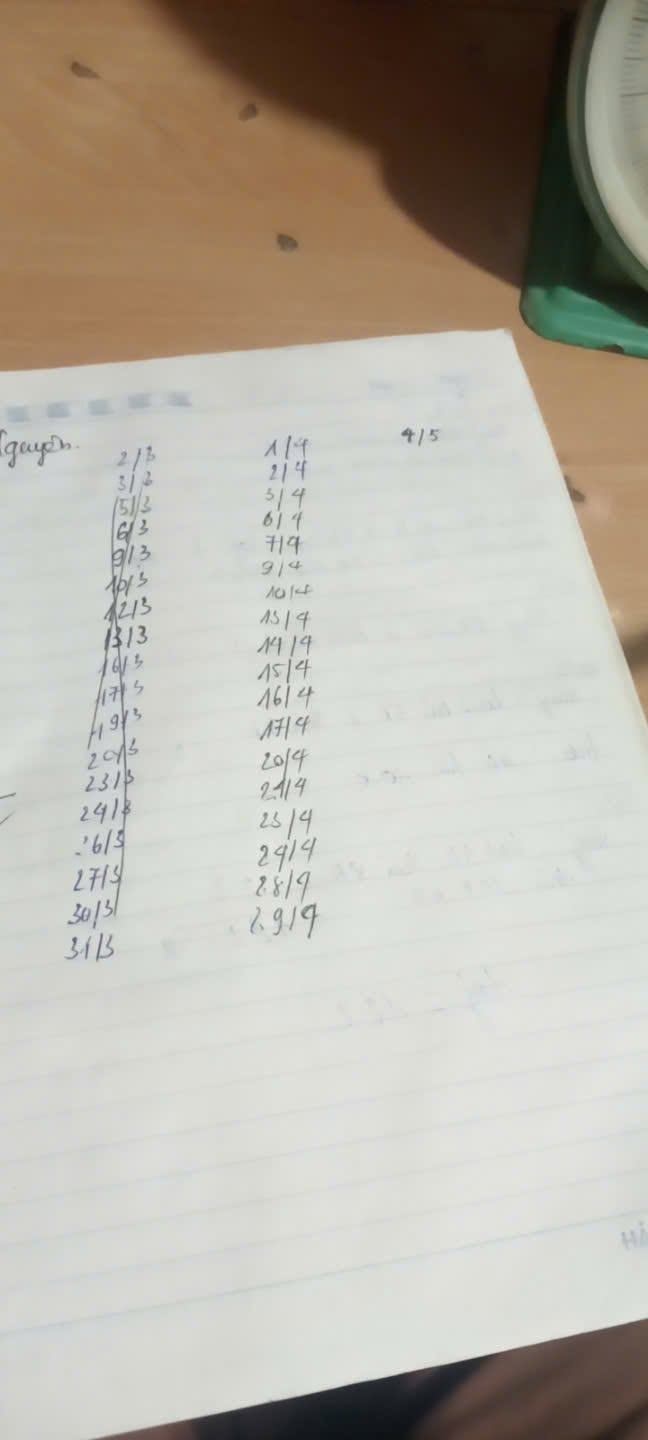 2/3 1/4 4/5
3/3 2/4
5/3 3/4
6/3 6/4
9/3 7/4
10/3 9/4
12/3 10/4
13/3 13/4
16/3 14/4
17/3 15/4
19/3 16/4
20/3 17/4
23/3 20/4
24/3 21/4
26/3 23/4
27/3 24/4
30/3 28/4
31/3 29/4